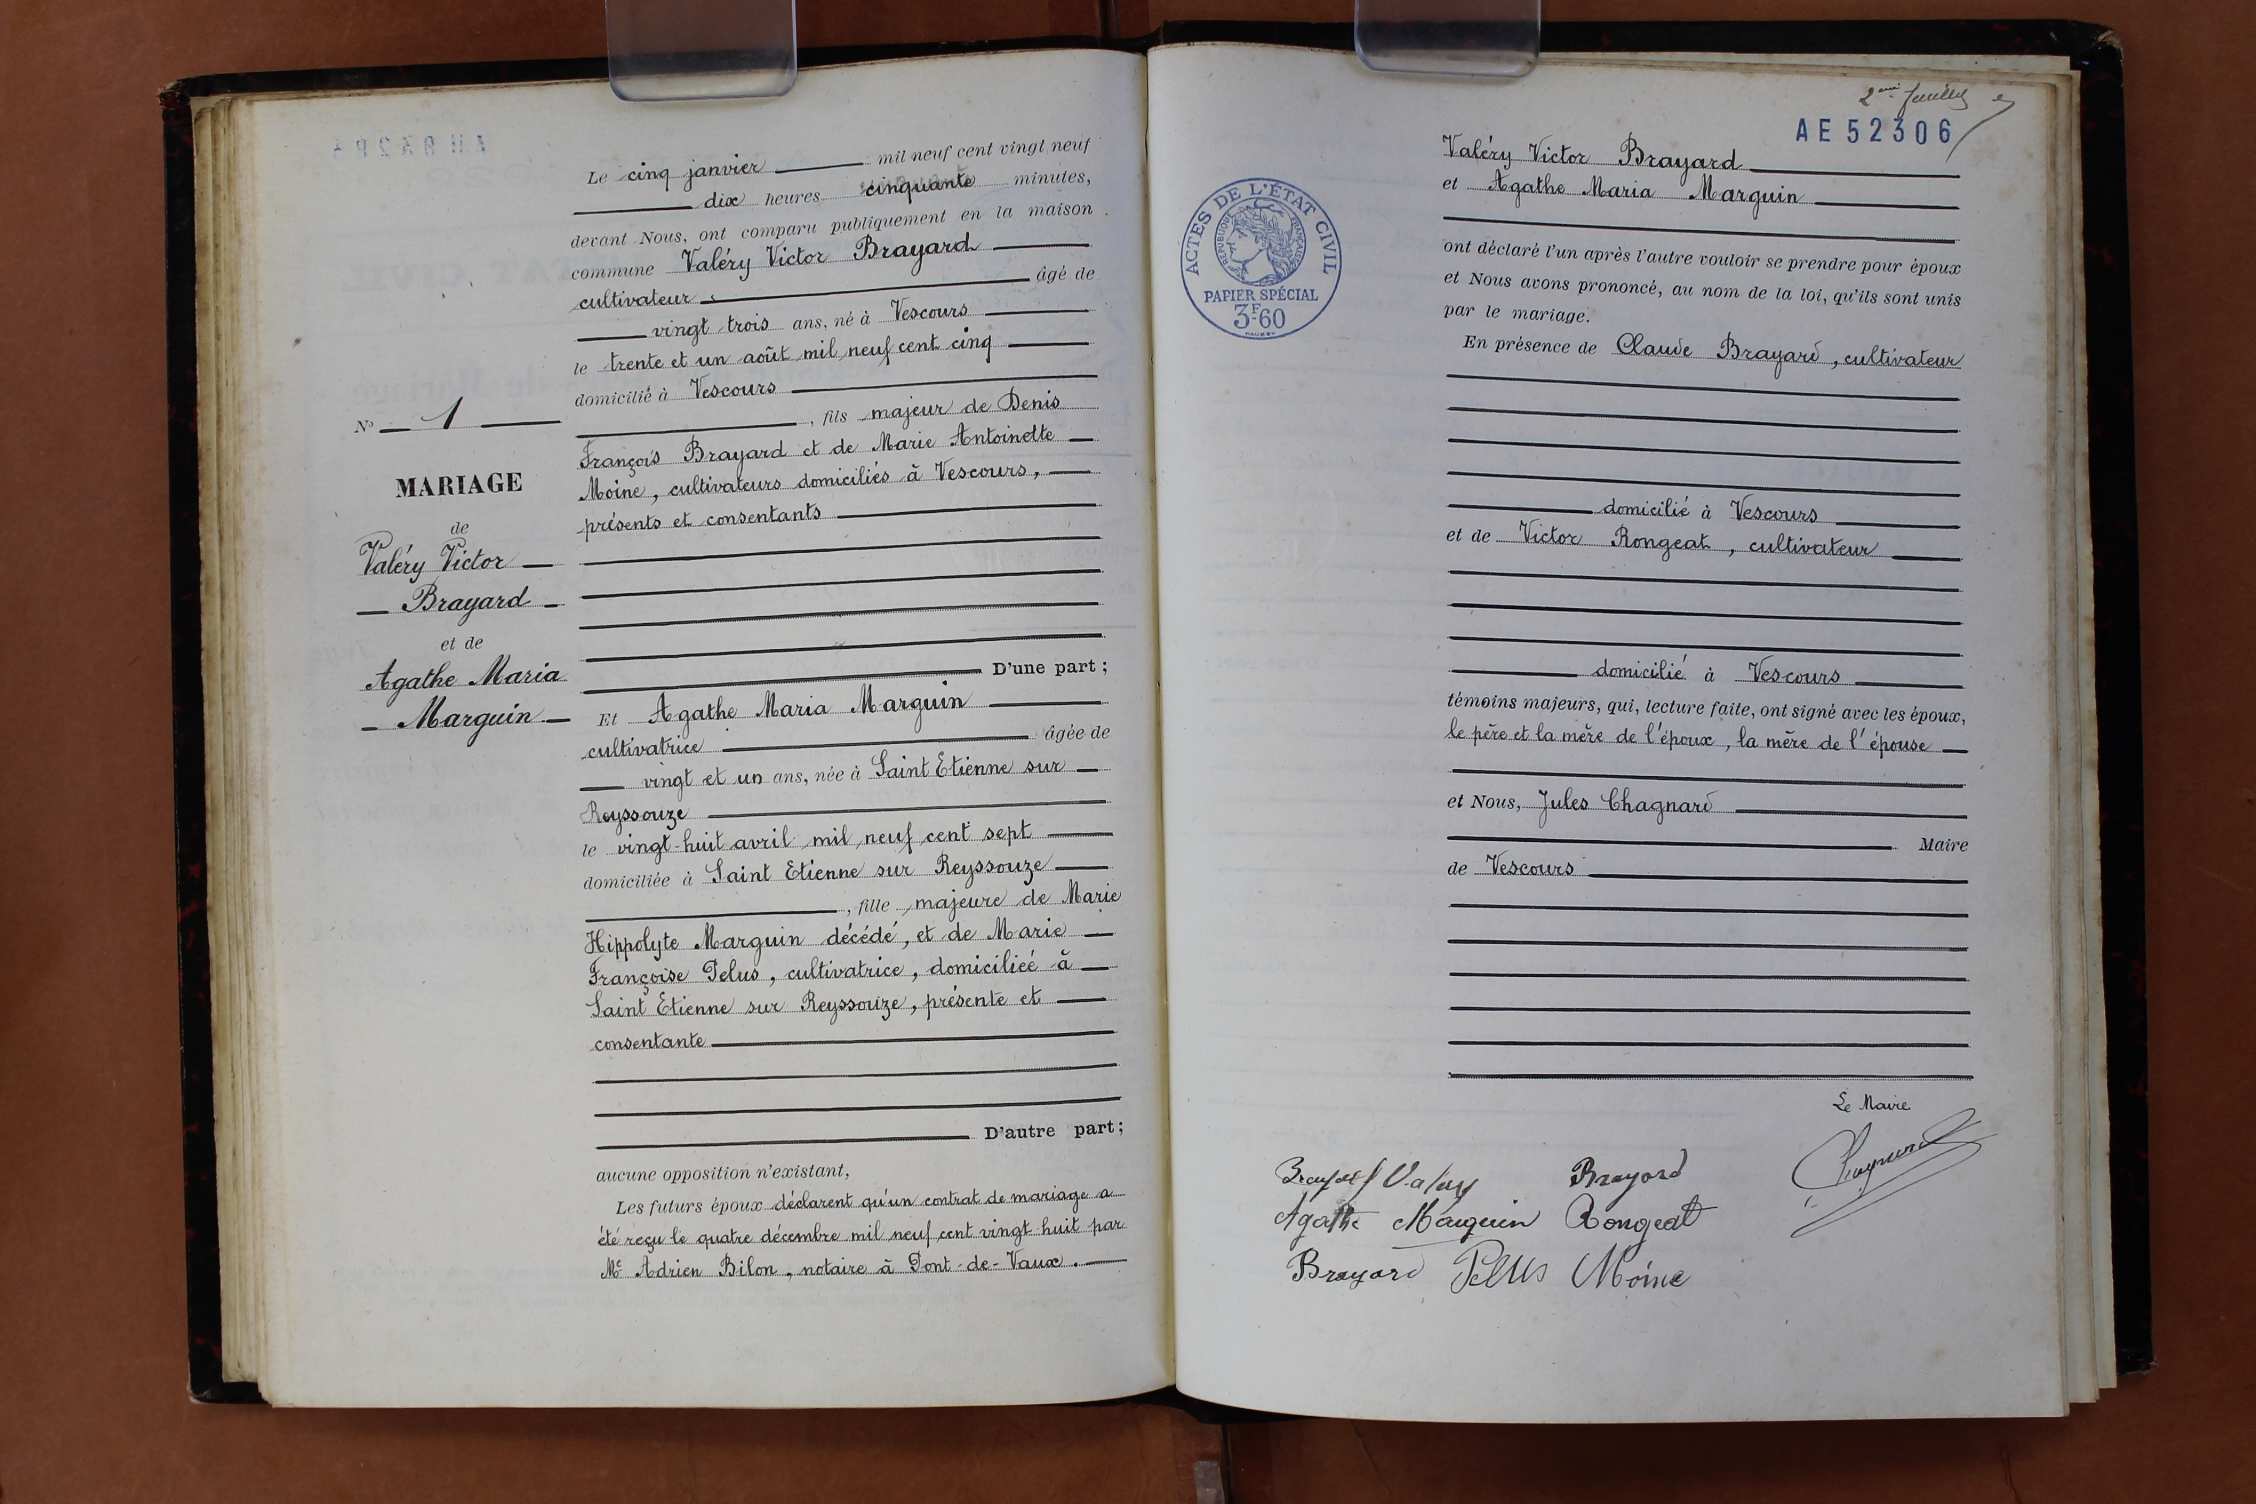 Le cinq janvier mil neuf cent vingt neuf
dix heures cinquante minutes,
devant Nous, ont comparu publiquement en la maison
commune Valéry Victor Brayard
cultivateur âgé de
vingt trois ans, né à Vescours
le trente et un août mil neuf cent cinq
domicilié à Vescours
, fils majeur de Denis
François Brayard et de Marie Antoinette
Moine, cultivateurs domiciliés à Vescours,
présents et consentants
D'une part;
Et Agathe Maria Marguin
cultivatrice âgée de
vingt et un ans, née à Saint Etienne sur
Reyssouze
le vingt-huit avril mil neuf cent sept
domiciliée à Saint Etienne sur Reyssouze
, fille majeure de Marie
Hippolyte Marguin décédé, et de Marie
Françoise Pelus, cultivatrice, domiciliée à
Saint Etienne sur Reyssouze, présente et
consentante
D'autre part;
aucune opposition n'existant,
Les futurs époux déclarent qu'un contrat de mariage a
été reçu le quatre décembre mil neuf cent vingt-huit par
Me Adrien Bilon, notaire à Pont-de-Vaux.
No 1
MARIAGE
de
Valéry Victor
Brayard
et de
Agathe Maria
Marguin
2eme feuillet
AE52306
ACTES DE L'ÉTAT CIVIL
RÉPUBLIQUE FRANÇAISE
PAPIER SPÉCIAL
3F60
Valéry Victor Brayard
et Agathe Maria Marguin
ont déclaré l'un après l'autre vouloir se prendre pour époux
et Nous avons prononcé, au nom de la loi, qu'ils sont unis
par le mariage.
En présence de Claude Brayard, cultivateur
domicilié à Vescours
et de Victor Rongeat, cultivateur
domicilié à Vescours
témoins majeurs, qui, lecture faite, ont signé avec les époux,
le père et la mère de l'époux, la mère de l'épouse
et Nous, Jules Chagnard
Maire
de Vescours
Le Maire
Chagnard
Brayard Valéry Brayard
Agathe Marguin Rongeat
Brayard Pelus Moine